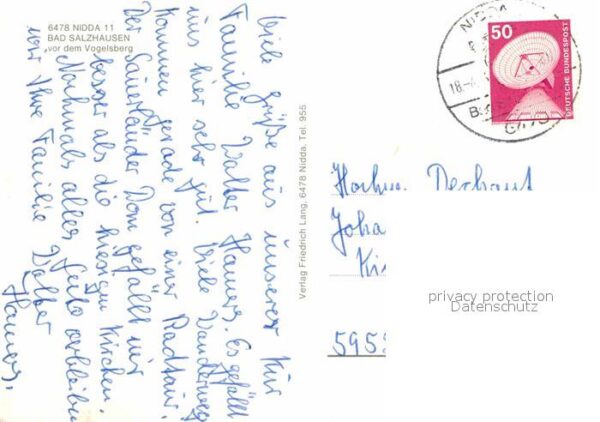 6478 NIDDA 11
BAD SALZHAUSEN
vor dem Vogelsberg
Viele Grüße aus unserer Kur
Familie Walter Hamers. Es gefällt
uns hier sehr gut. Viele Wanderweg
Kommen gerade von einer Radtour.
Der Sauerländer Dom gefällt mir
besser als die hiesigen Kirchen.
Nochmals alles Gute verbleiben
wir Ihre Familie Walter
Hamers.
Verlag Friedrich Lang, 6478 Nidda, Tel. 955
NIDDA
18.
6478
50
DEUTSCHE BUNDESPOST
Joha
Ki
595
privacy protection
Datenschutz